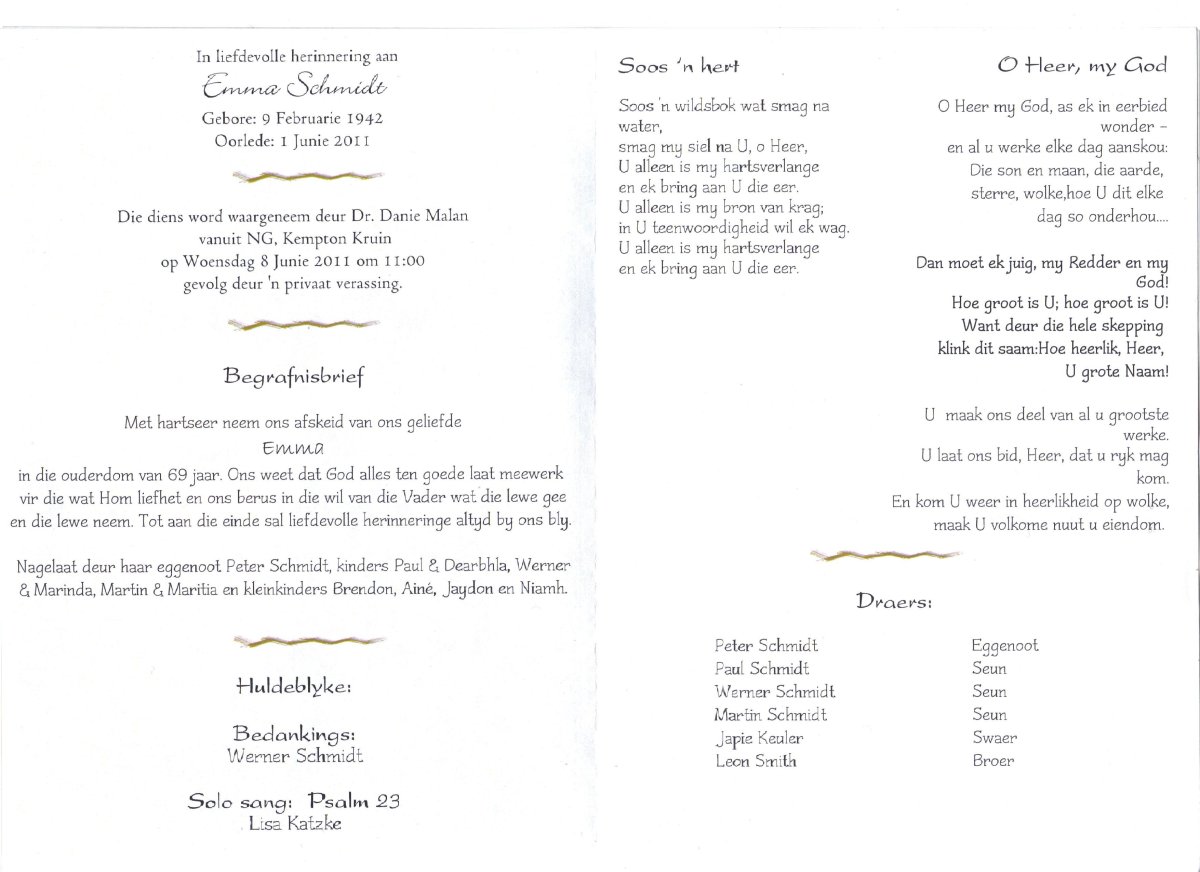 In liefdevolle herinnering aan
Emma Schmidt
Gebore: 9 Februarie 1942
Oorlede: 1 Junie 2011
Die diens word waargeneem deur Dr. Danie Malan
vanuit NG, Kempton Kruin
op Woensdag 8 Junie 2011 om 11:00
gevolg deur 'n privaat verassing.
Begrafnisbrief
Met hartseer neem ons afskeid van ons geliefde
Emma
in die ouderdom van 69 jaar. Ons weet dat God alles ten goede laat meewerk
vir die wat Hom liefhet en ons berus in die wil van die Vader wat die lewe gee
en die lewe neem. Tot aan die einde sal liefdevolle herinneringe altyd by ons bly.
Nagelaat deur haar eggenoot Peter Schmidt, kinders Paul & Dearbhla, Werner
& Marinda, Martin & Maritia en kleinkinders Brendon, Ainé, Jaydon en Niamh.
Huldeblyke:
Bedankings:
Werner Schmidt
Solo sang: Psalm 23
Lisa Katzke
Soos 'n hert
Soos 'n wildsbok wat smag na
water,
smag my siel na U, o Heer,
U alleen is my hartsverlange
en ek bring aan U die eer.
U alleen is my bron van krag;
in U teenwoordigheid wil ek wag.
U alleen is my hartsverlange
en ek bring aan U die eer.
O Heer, my God
O Heer my God, as ek in eerbied
wonder –
en al u werke elke dag aanskou:
Die son en maan, die aarde,
sterre, wolke,hoe U dit elke
dag so onderhou....
Dan moet ek juig, my Redder en my
God!
Hoe groot is U; hoe groot is U!
Want deur die hele skepping
klink dit saam:Hoe heerlik, Heer,
U grote Naam!
U maak ons deel van al u grootste
werke.
U laat ons bid, Heer, dat u ryk mag
kom.
En kom U weer in heerlikheid op wolke,
maak U volkome nuut u eiendom.
Draers:
Peter Schmidt Eggenoot
Paul Schmidt Seun
Werner Schmidt Seun
Martin Schmidt Seun
Japie Keuler Swaer
Leon Smith Broer